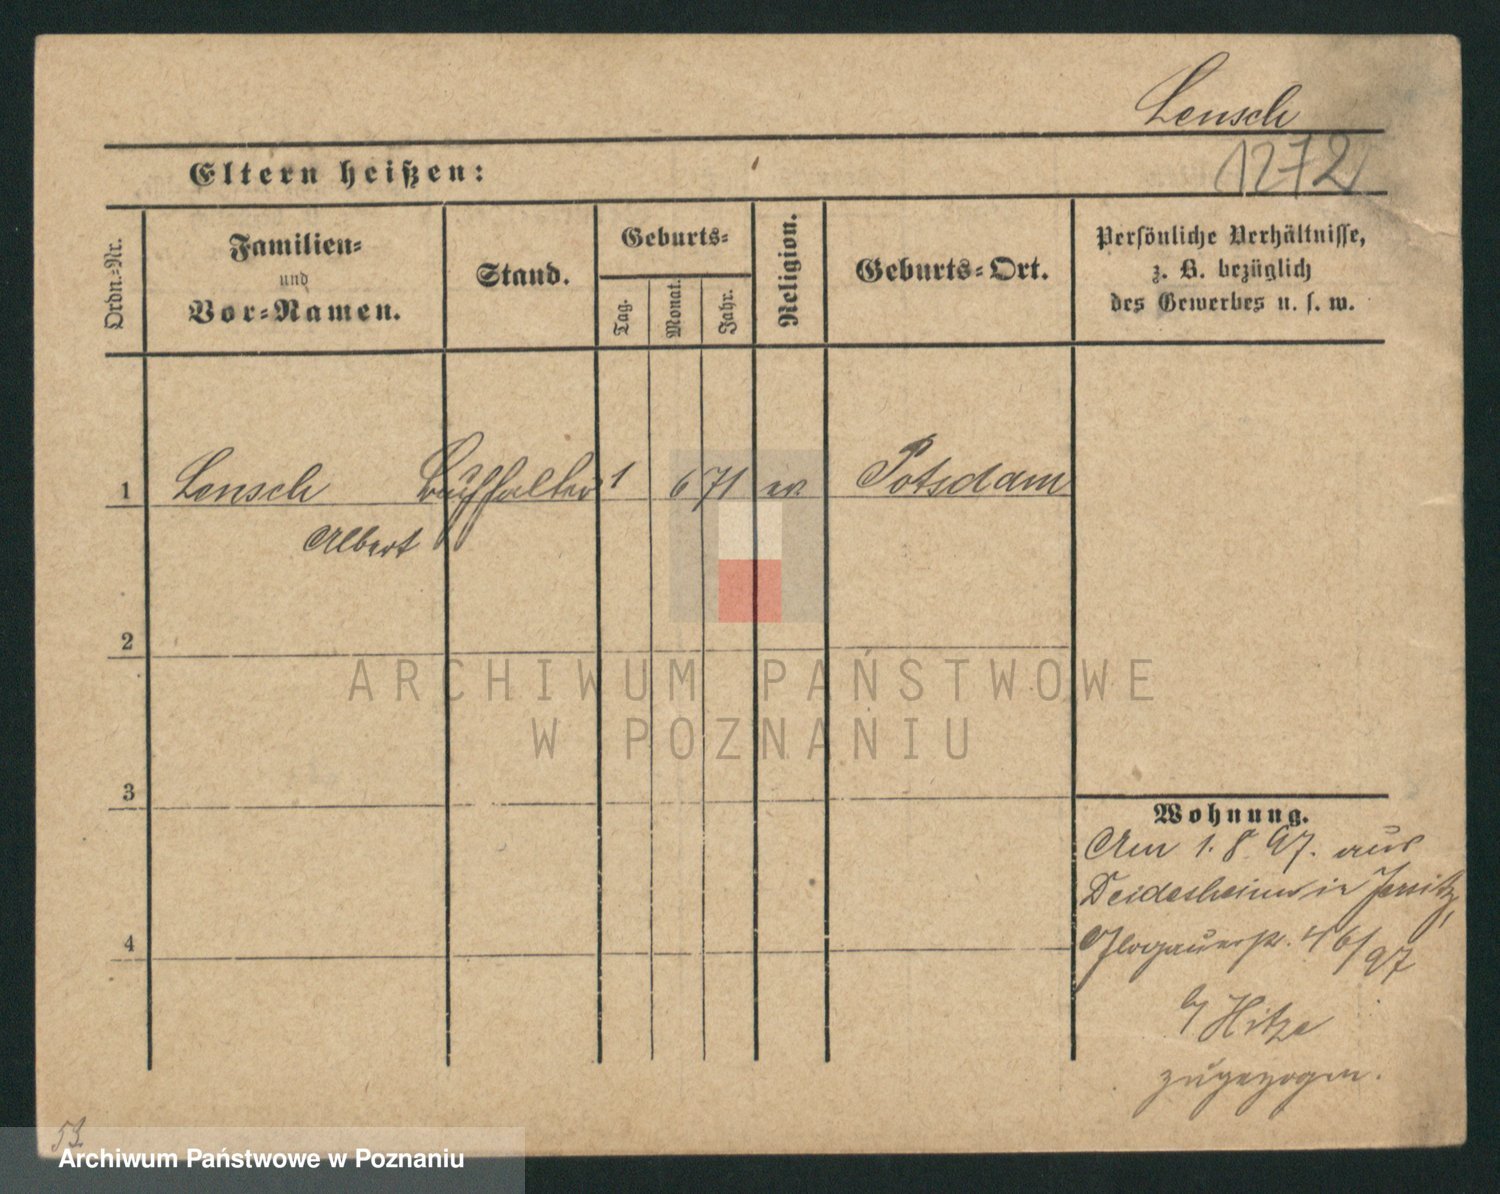 Lensch
1272
Eltern heißen:
Ordn.=Nr.
Familien=
und
Vor=Namen.
Stand.
Geburts=
Tag.
Monat.
Jahr.
Religion.
Geburts=Ort.
Persönliche Verhältnisse,
z. B. bezüglich
des Gewerbes u. s. w.
1 Lensch Buchhalter 1 6 71 ev. Potsdam
Albert
2
3
4
Wohnung.
Am 1. 8. 97. aus
Deidesheim in Jersitz,
Glogauerstr. 46/97
b/ Hitze
zugezogen.
ARCHIWUM PAŃSTWOWE
W POZNANIU
Archiwum Państwowe w Poznaniu